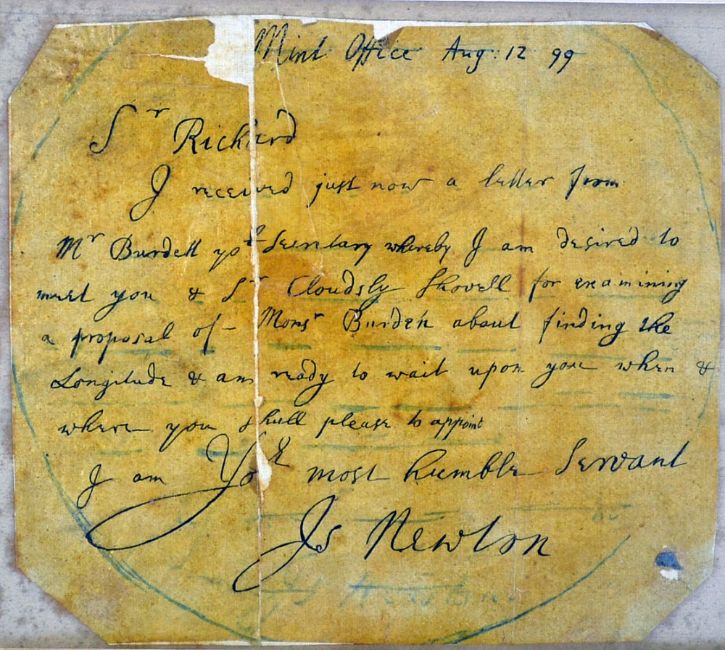 Mint Office Aug: 12 99
Sr Richard
I received just now a letter from
Mr Burdett yor Secretary whereby I am desired to
meet you & Sr Cloudsly Shovell for examining
a proposal of Monsr Burden about finding the
Longitude & am ready to wait upon you when &
where you shall please to appoint
I am Yor most humble Servant
Is Newton